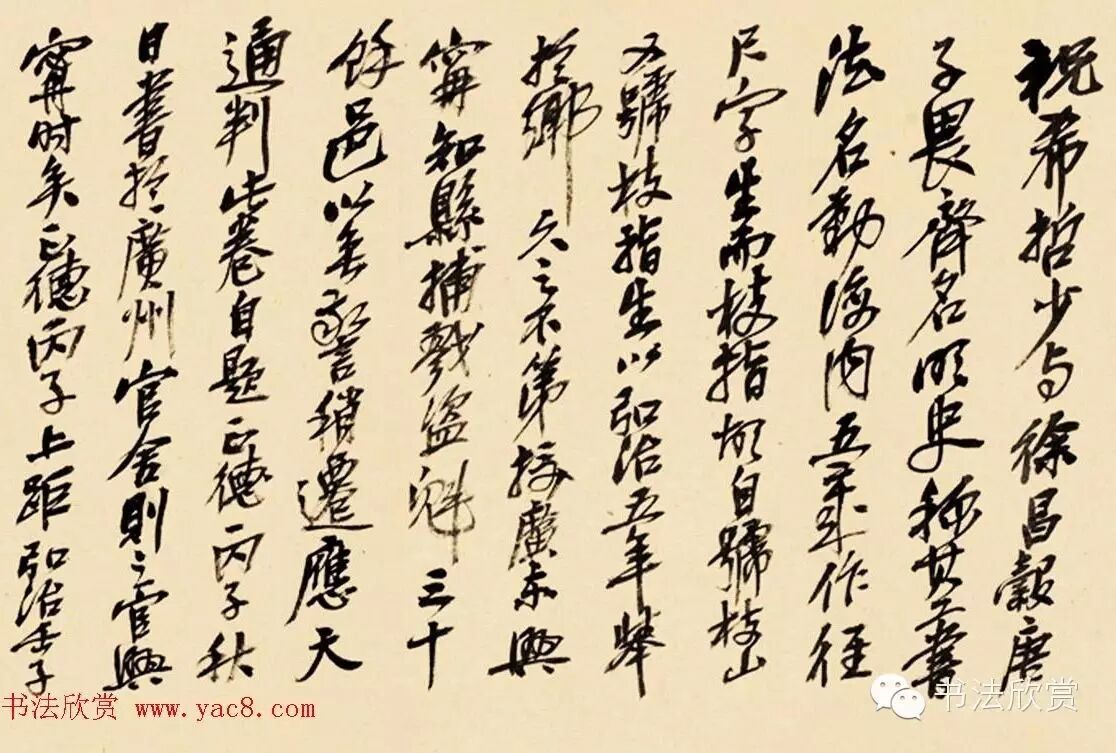 祝希哲少与徐昌穀唐
子畏齊名明史稱其工書
法名動海内五年作徑
尺字生而枝指故自號枝山
又號枝指生以弘治五年舉
於鄉久之不第授廣東興
寧知縣捕戮盜魁三十
餘邑以無警稍遷應天
通判此卷自題正德丙子秋
日書於廣州官舍則之官興
寧时矣正德丙子上距弘治壬子
书法欣赏 www.yac8.com
书法欣赏